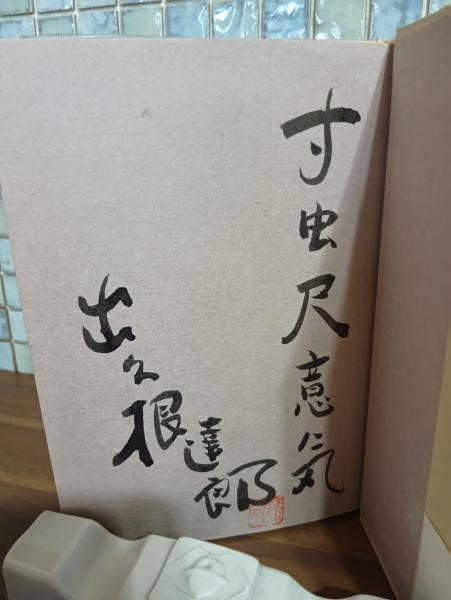 寸虫尺意気
出久根達郎